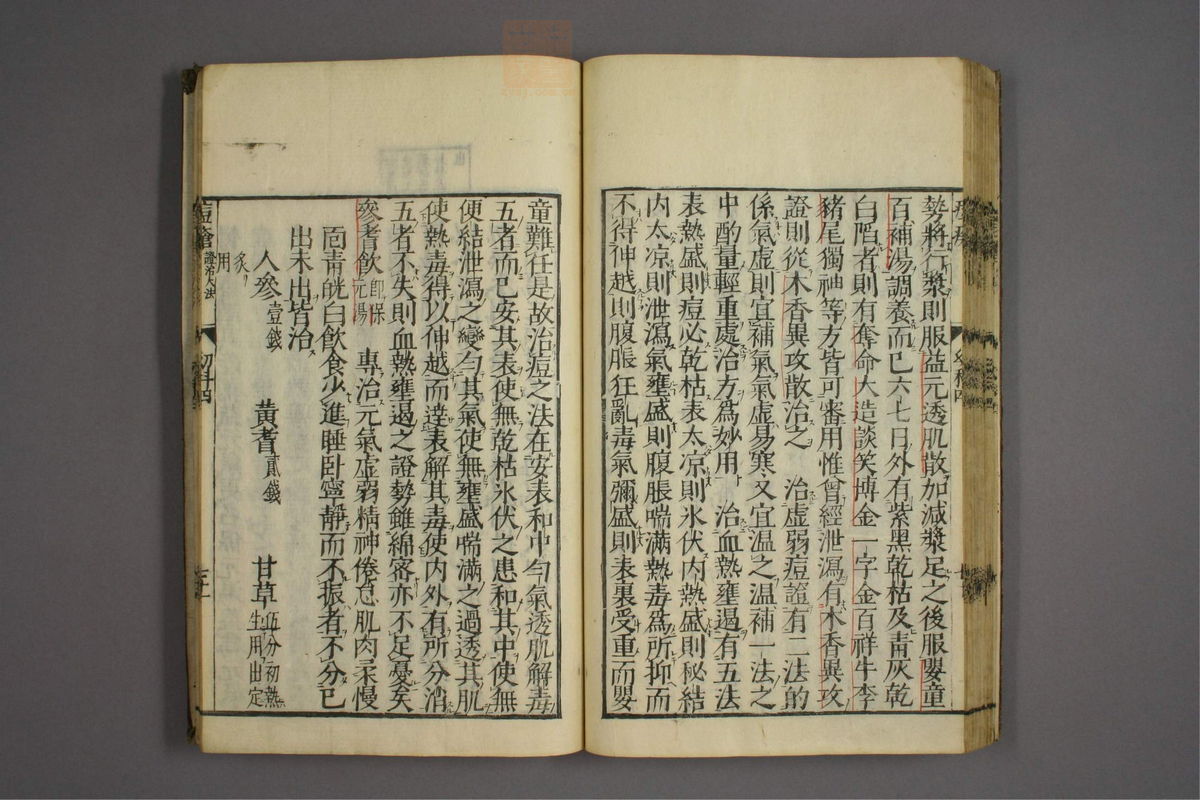 勢將行漿則服益元透肌散加減漿足之後服嬰童
百補湯調養而已六七日外有紫黑乾枯及靑灰乾
白陷者則有奪命大造談笑博金一字金百祥牛李
豬尾獨神等方皆可審用惟曾經泄瀉有木香異攻
證則從木香異攻散治之 治虛弱痘證有二法的
係氣虛則宜補氣氣虛易寒又宜溫之溫補一法之
中酌量輕重處治方爲妙用 治血熱壅遏有五法
表熱盛則痘必乾枯表太凉則氷伏內熱盛則秘結
內太凉則泄瀉氣壅盛則腹脹喘滿熱毒爲所抑而
不得伸越則腹脹狂亂毒氣彌盛則表裏受重而嬰
幼科四
童難任是故治痘之法在安表和中勻氣透肌解毒
五者而已安其表使無乾枯氷伏之患和其中使無
便結泄瀉之變勻其氣使無壅盛喘滿之過透其肌
使熱毒得以伸越而達表解其毒使內外有所分消
五者不失則血熱壅遏之證勢雖綿密亦不足憂矣
參耆飮 卽保元湯 專治元氣虛弱精神倦怠肌肉柔慢
面靑㿠白飮食少進睡臥寧靜而不振者不分已
出未出皆治
人參壹錢 黃耆貳錢 甘草伍分初熱生用出定
炙用
痘瘡證治大法 幼科四